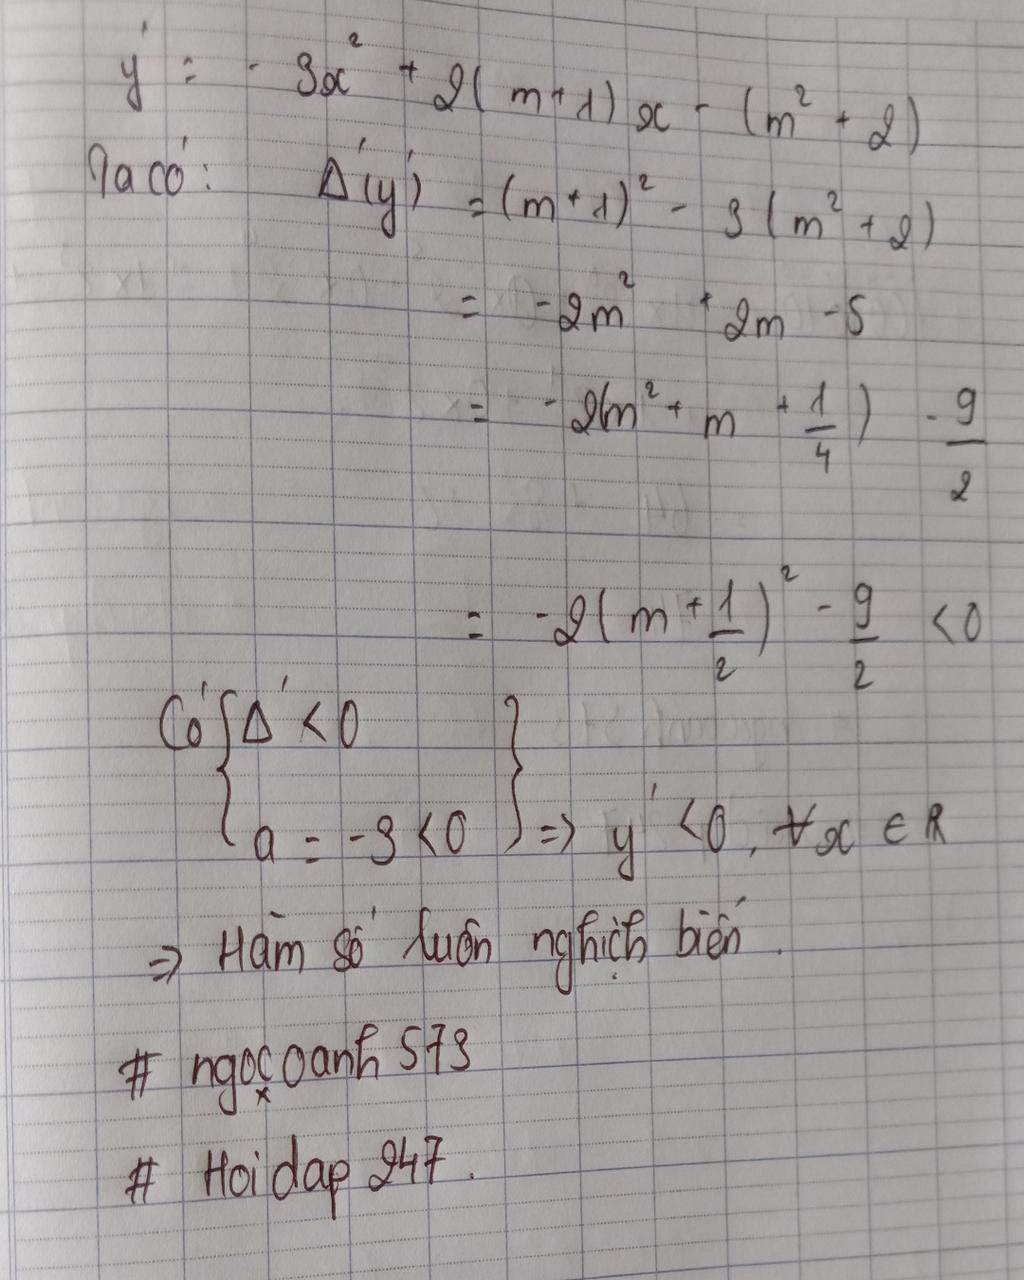 y' = -3x² + 2(m+1)x - (m² + 2)
Ta có: Δ'(y') = (m+1)² - 3(m² + 2)
= -2m² + 2m - 5
= -2(m² + m + 1/4) - 9/2
= -2(m + 1/2)² - 9/2 < 0
Có { Δ' < 0
a = -3 < 0 } => y' < 0, ∀x ∈ R
=> Hàm số luôn nghịch biến.
# ngọcoanh 573
# Hoidap 247.